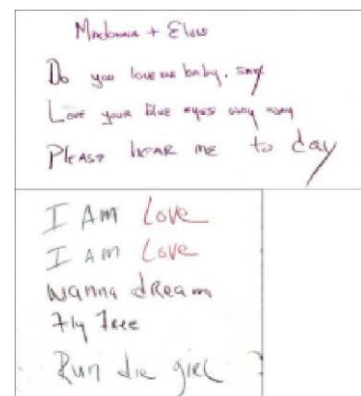 Madonna + Elvis
Do you love me baby, say
Love your blue eyes away away
PLEASE HEAR ME to day
I AM Love
I AM Love
wanna dream
Fly Free
Run die girl